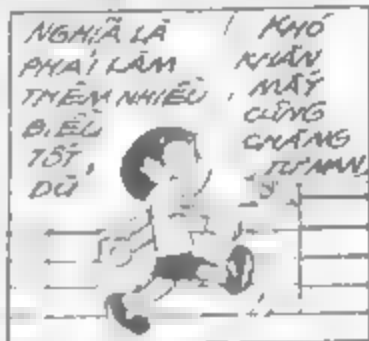 NGHĨA LÀ
PHẢI LÀM
THÊM NHIỀU
ĐIỀU
TỐT,
DÙ
KHÓ
KHĂN
MẤY
CŨNG
CHẲNG
TỪ NAN.